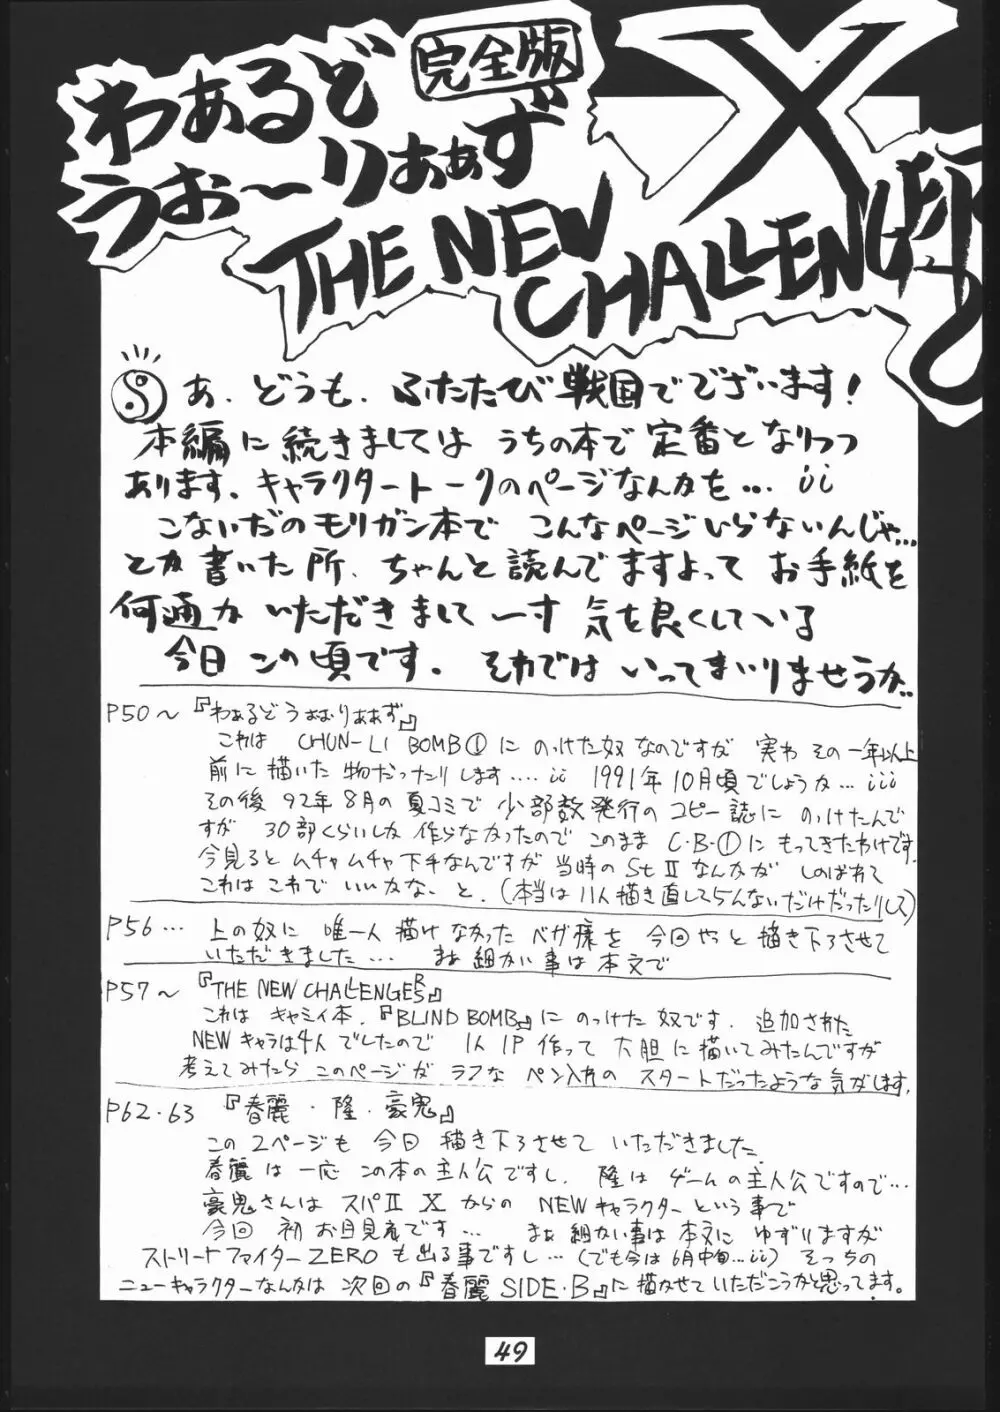 わぁるど
完全版
X
うぉ〜りぁぁず
THE NEW
CHALLENGERS
あ、どうも、ふたたび戦国でございます!
本編に続きましては うちの本で定番となりつつ
あります、キャラクタートークのページなんかを…ii
こないだのモリガン本で こんなページいらないんじゃ…
とか書いた所、ちゃんと読んでますよって お手紙を
何通か いただきまして 一寸 気を良くしている
今日この頃です. それでは いってまいりませうか..
P50〜『わぁるどうぉむりぁぁず』
これは CHUN-LI BOMB①に のっけた奴なのですが 実わ その一年以上
前に描いた物だったりします....ii 1991年10月頃でしょうか...iii
その後 92年8月の夏コミで 少部数発行の コピー誌に のっけたんで
すが 30部くらいしか 作らなかったので このまま C・B・①に もってきたわけです.
今見ると ムチャムチャ下手なんですが 当時の StⅡなんかが しのばれて
これは これで いいかな、と. (本当は 11人描き直してらんないだけだったりして)
P56… 上の奴に 唯一人 描けなかった ベガ様を 今回やっと描き下ろさせて
いただきました... まぁ細かい事は本文で
P57〜『THE NEW CHALLENGERS』
これは キャミィ本.『BLIND BOMB』に のっけた奴です. 追加された
NEWキャラは4人でしたので 1人1P作って 大胆に描いてみたんですが
考えてみたら このページが ラフな ペン入れの スタートだったような気がします.
P62・63 『春麗・隆・豪鬼』
この2ページも 今回 描き下ろさせて いただきました.
春麗は 一応 この本の主人公ですし. 隆は ゲームの主人公ですので...
豪鬼さんは スパⅡ Xからの NEWキャラクターという事で
今回 初お目見えです... まぁ 細かい事は本文に ゆずりますが
ストリートファイターZEROも出る事ですし…(でも今は6月中旬…ii) そっちの
ニューキャラクターなんかは 次回の『春麗SIDE・B』に描かせていただこうかと思ってます。
49